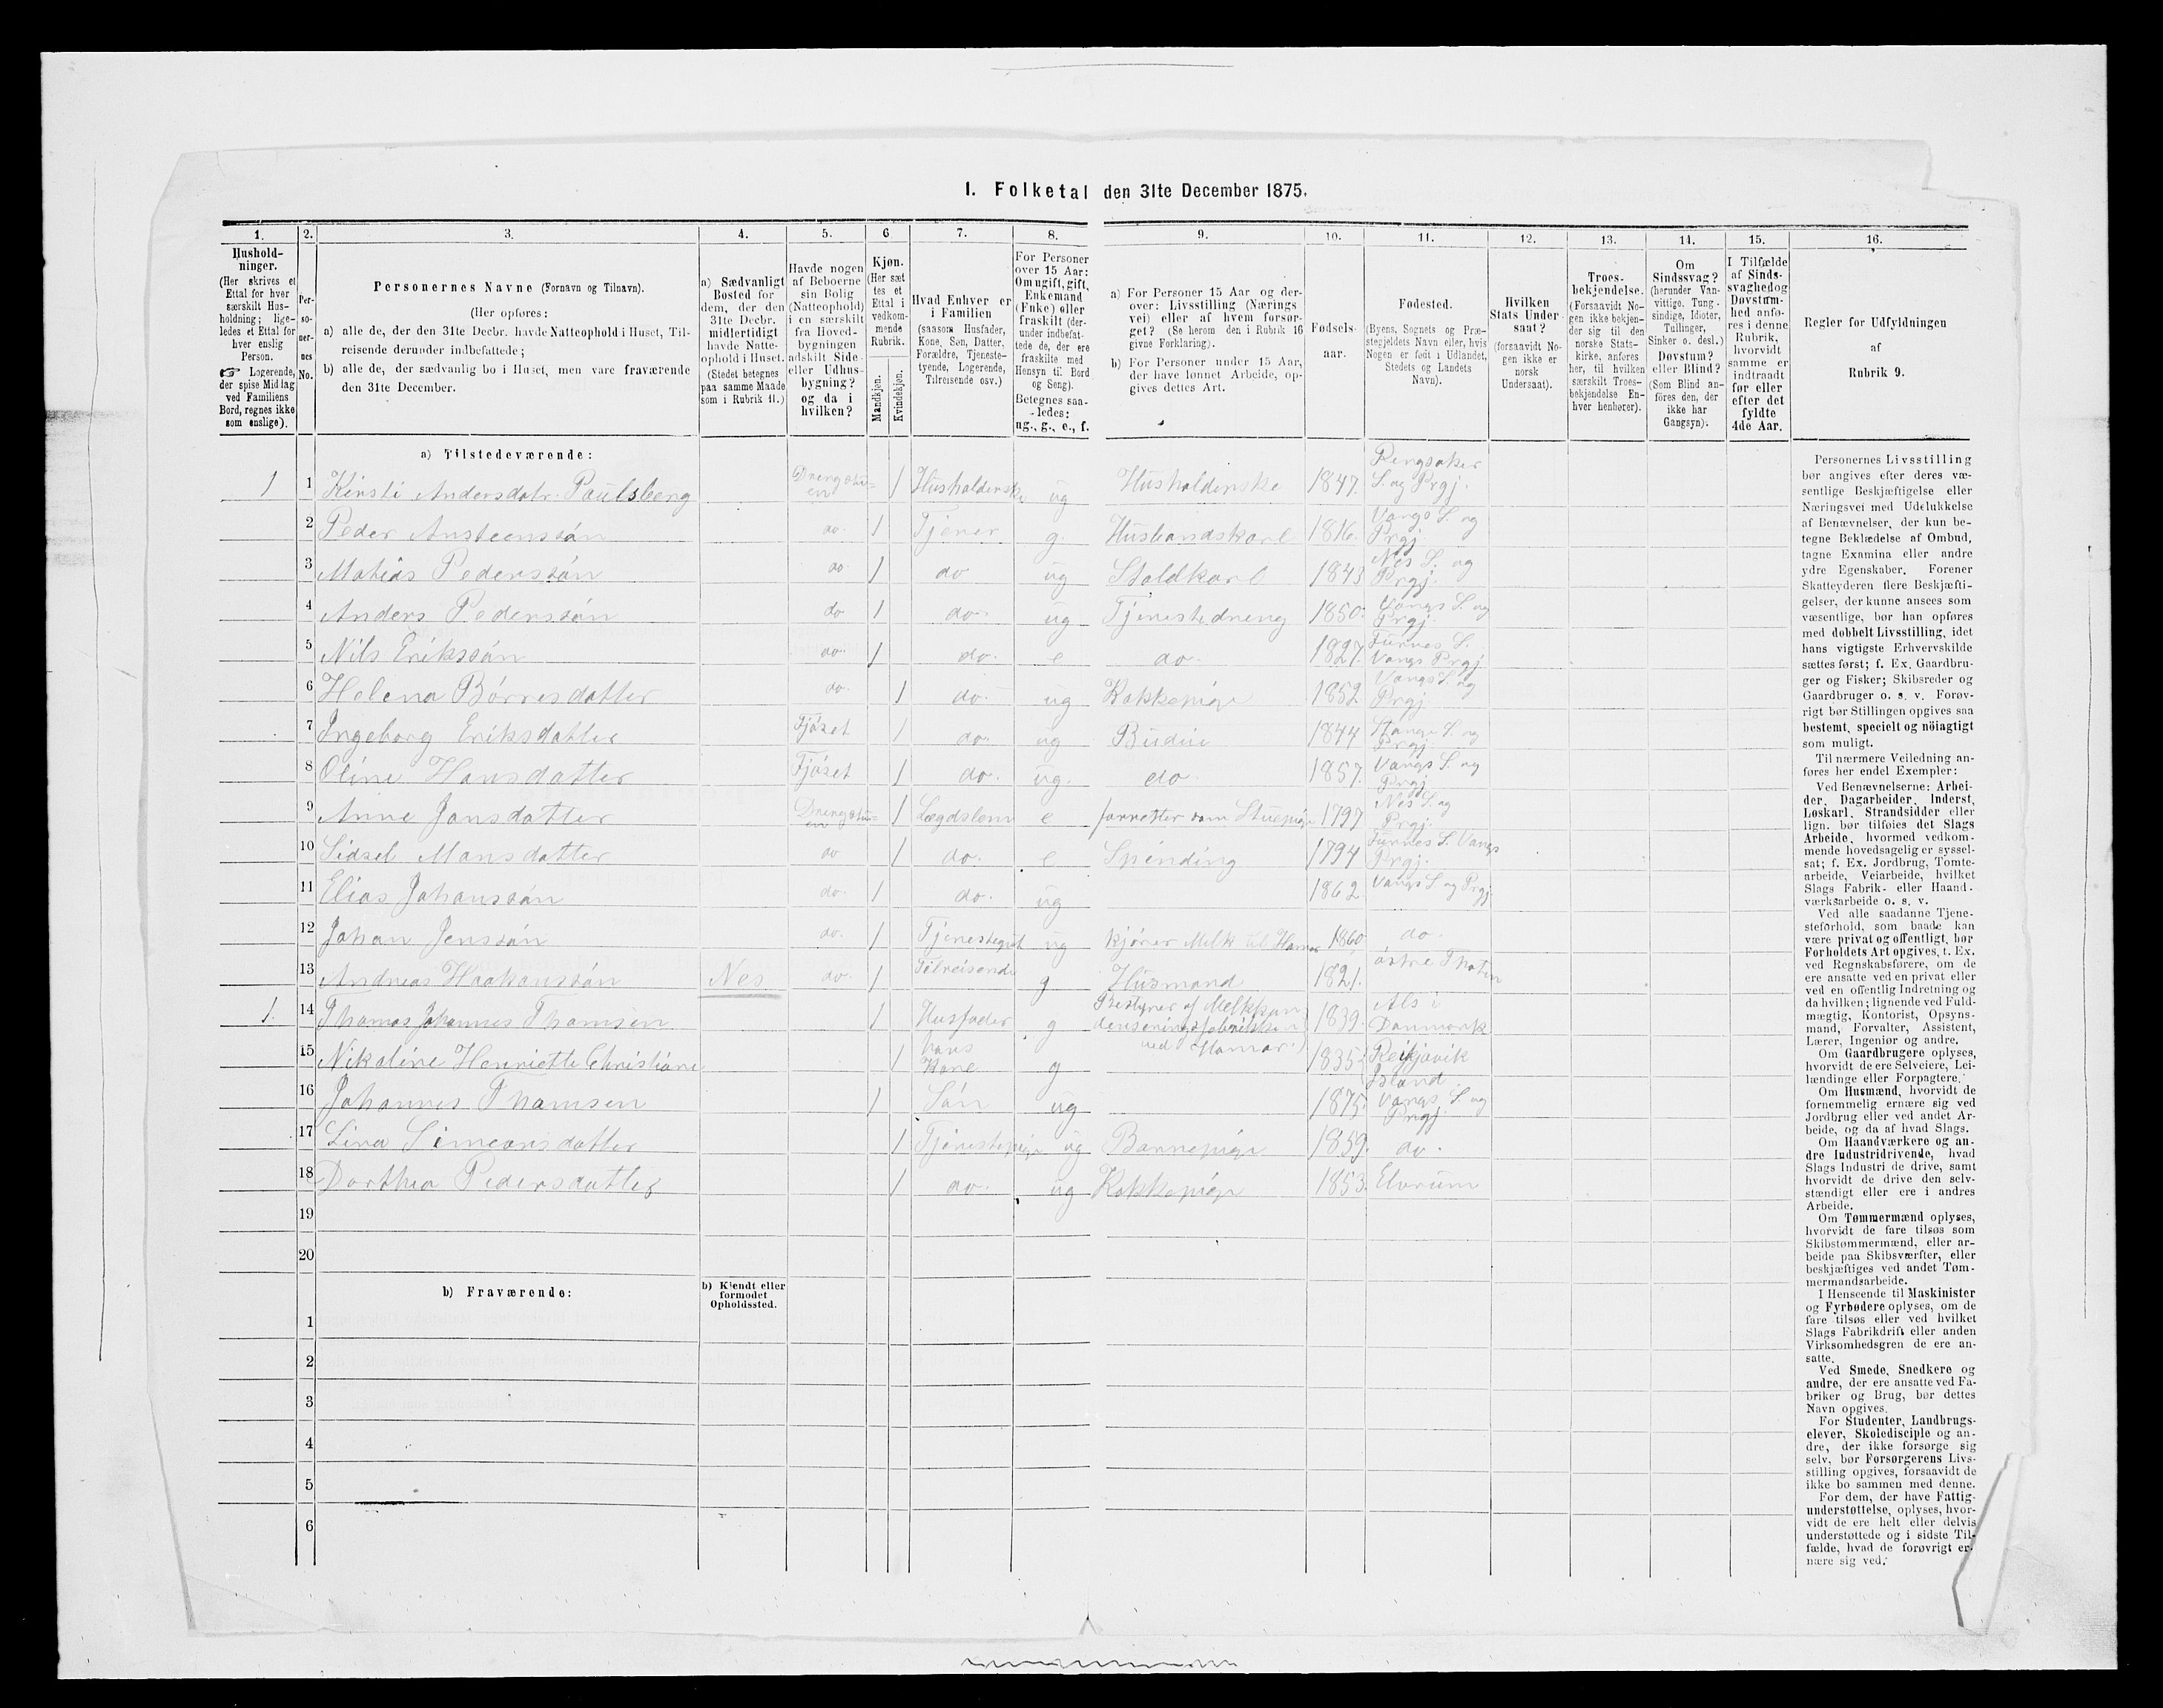 I. Folketal den 31te December 1875.
1. 2. 3. 4. 5. 6 7. 8. 9. 10. 11. 12. 13. 14. 15. 16.
Hushold-
ninger.
(Her skrives et
Ettal for hver
særskilt Hus-
holdning; lige-
ledes et Ettal for
hver enslig
Person.
☞ Logerende,
der spise Middag
ved Familiens
Bord, regnes ikke
som enslige).
Per-
so-
ner-
nes
No.
Personernes Navne (Fornavn og Tilnavn).
(Her opføres:
a) alle de, der den 31te Decbr. havde Natteophold i Huset, Til-
reisende derunder indbefattede;
b) alle de, der sædvanlig bo i Huset, men vare fraværende
den 31te December.
a) Sædvanligt
Bosted for
dem, der den
31te Decbr.
midlertidigt
havde Natte-
ophold i Huset.
(Stedet betegnes
paa samme Maade
som i Rubrik 11.)
Havde nogen
af Beboerne
sin Bolig
(Natteophold)
i en særskilt
fra Hoved-
bygningen
adskilt Side-
eller Udhus-
bygning?
og da i
hvilken?
Kjøn.
(Her sæt
tes et
Ettal i
vedkom-
mende
Rubrik.
Mandkjøn.
Kvindekjøn.
Hvad Enhver er
i Familien
(saasom Husfader,
Kone, Søn, Datter,
Forældre, Tjeneste-
tyende, Logerende,
Tilreisende osv.)
For Personer
over 15 Aar:
Om ugift, gift,
Enkemand
(Enke) eller
fraskilt (der-
under indbefat-
tede de, der ere
fraskilte med
Hensyn til Bord
og Seng).
Betegnes saa-
ledes:
ug., g., e., f.
a) For Personer 15 Aar og der-
over: Livsstilling (Nærings
vei) eller af hvem forsør-
get? (Se herom den i Rubrik 16
givne Forklaring).
b) For Personer under 15 Aar,
der have lønnet Arbeide, op-
gives dettes Art.
Fødsels-
aar.
Fødested.
(Byens, Sognets og Præ-
stegjeldets Navn eller, hvis
Nogen er født i Udlandet,
Stedets og Landets
Navn).
Hvilken
Stats Under-
saat?
(forsaavidt No-
gen ikke er
norsk
Undersaat).
Troes-
bekjendelse.
(Forsaavidt No-
gen ikke bekjen-
der sig til den
norske Stats-
kirke, anføres
her, til hvilken
særskilt Troes-
bekjendelse En-
hver henhører).
Om
Sindssvag?
(herunder Van-
vittige, Tung-
sindige, Idioter,
Tullinger,
Sinker o. desl.)
Døvstum?
eller Blind?
(Som Blind an-
føres den, der
ikke har
Gangsyn).
I Tilfælde
af Sinds-
svaghed og
Døvstum-
hed anfø-
res i denne
Rubrik,
hvorvidt
samme er
indtraadt
før eller
efter det
fyldte
4de Aar.
Regler for Udfyldningen
af
Rubrik 9.
a) Tilstedeværende:
1 1 Kirsti Andersdatr. Paulsberg Drengestu-en 1 Husholderske ug Husholderske 1847. Ringsaker S. og Prgj.
2 Peder Austeensøn do. 1 Tjener g. Husbondskarl 1816. Vangs S. og Prgj.
3 Matias Pederssøn do 1 do ug Staldkarl 1843 Nes S. og Prgj.
4 Anders Pederssøn do 1 do. ug Tjenestedreng 1850. Vangs S. og Prgj.
5 Nils Erikssøn do. 1 do. e do. 1827. Furnes S. Vangs Prgj
6 Helena Børresdatter do. 1 do. ug Kokkepige 1852 Vangs S. og Prgj.
7 Ingeborg Eriksdatter Fjøset 1 do. ug Budeie 1844 Stange S. og Prgj.
8 Oline Hansdatter Fjøset 1 do. ug. do. 1857. Vangs S. og Prgj
9 Anne Jonsdatter Drengestu-en 1 Lægdslem e forretter som Stuepige 1797 Nes S. og Prgj.
10 Sidsel Monsdatter do 1 do. e Spinding 1794 Furnes S. Vangs Prgj.
11 Elias Johanssøn do. 1 do. ug 1862 Vangs S. og Prgj.
12 Johan Jenssøn do. 1 Tjenestegut ug kjører Melk til Hamar 1860 do.
13 Andreas Haakonssøn Nes do. 1 Tilreisende g Husmand 1821. østre Thoten
1. 14 Thomas Johannes Thomsen 1 Husfader g Bestyrer af Melkkon-denseringsfabrikken ved Hamar. 1839. Als i Danmark
15 Nikoline Henriette Christiane 1 hans Kone g 1835. Reikjavik Island
16 Johannes Thomsen 1 Søn ug 1875. Vangs S. og Prgj.
17 Lina Simeonsdatter 1 Tjenestepige ug Barnepige 1859. do.
18 Dorthea Pedersdatter 1 do. ug Kokkepige 1853. Elverum
19
20
b) Fraværende:
b) Kjendt eller
formodet
Opholdssted.
1
2
3
4
5
6
Personernes Livsstilling
bør angives efter deres væ-
sentlige Beskjæftigelse eller
Næringsvei med Udelukkelse
af Benævnelser, der kun be-
tegne Beklædelse af Ombud,
tagne Examina eller andre
ydre Egenskaber. Forener
Skatteyderen flere Beskjæfti-
gelser, der kunne ansees som
væsentlige, bør han opføres
med dobbelt Livsstilling, idet
hans vigtigste Erhvervskilde
sættes først; f. Ex. Gaardbru-
ger og Fisker; Skibsreder og
Gaardbruger o. s. v. Forøv-
rigt bør Stillingen opgives saa
bestemt, specielt og nöiagtigt
som muligt.
Til nærmere Veiledning an-
føres her endel Exempler:
Ved Benævnelserne: Arbei-
der, Dagarbeider, Inderst,
Løskarl, Strandsidder eller
lign. bør tilføies det Slags
Arbeide, hvormed vedkom-
mende hovedsagelig er syssel-
sat; f. Ex. Jordbrug, Tomte-
arbeide, Veiarbeide, hvilket
Slags Fabrik- eller Haand-
værksarbeide o. s. v.
Ved alle saadanne Tjene-
steforhold, som baade kan
være privat og offentligt, bør
Forholdets Art opgives, t. Ex.
ved Regnskabsførere, om de
ere ansatte ved en privat eller
ved en offentlig Indretning og
da hvilken; lignende ved Fuld-
mægtig, Kontorist, Opsyns-
mand, Forvalter, Assistent,
Lærer, Ingeniør og andre.
Om Gaardbrugere oplyses,
hvorvidt de ere Selveiere, Lei-
lændinge eller Forpagtere.
Om Husmænd, hvorvidt de
fornemmelig ernære sig ved
Jordbrug eller ved andet Ar-
beide, og da af hvad Slags.
Om Haandværkere og an-
dre Industridrivende, hvad
Slags Industri de drive, samt
hvorvidt de drive den selv-
stændigt eller ere i andres
Arbeide.
Om Tømmermænd oplyses,
hvorvidt de fare tilsøs som
Skibstømmermænd, eller ar-
beide paa Skibsværfter, eller
beskjæftiges ved andet Tøm-
mermandsarbeide.
I Henseende til Maskinister
og Fyrbødere oplyses, om de
fare tilsøs eller ved hvilket
Slags Fabrikdrift eller anden
Virksomhedsgren de ere an-
satte.
Ved Smede, Snedkere og
andre, der ere ansatte ved Fa-
briker og Brug, bør dettes
Navn opgives.
For Studenter, Landbrugs-
elever, Skoledisciple og an-
dre, der ikke forsørge sig
selv, bør Forsørgerens Livs-
stilling opgives, forsaavidt de
ikke bo sammen med denne.
For dem, der have Fattig-
understøttelse, oplyses, hvor-
vidt de ere helt eller delvis
understøttede og i sidste Til-
fælde, hvad de forøvrigt er-
nære sig ved.